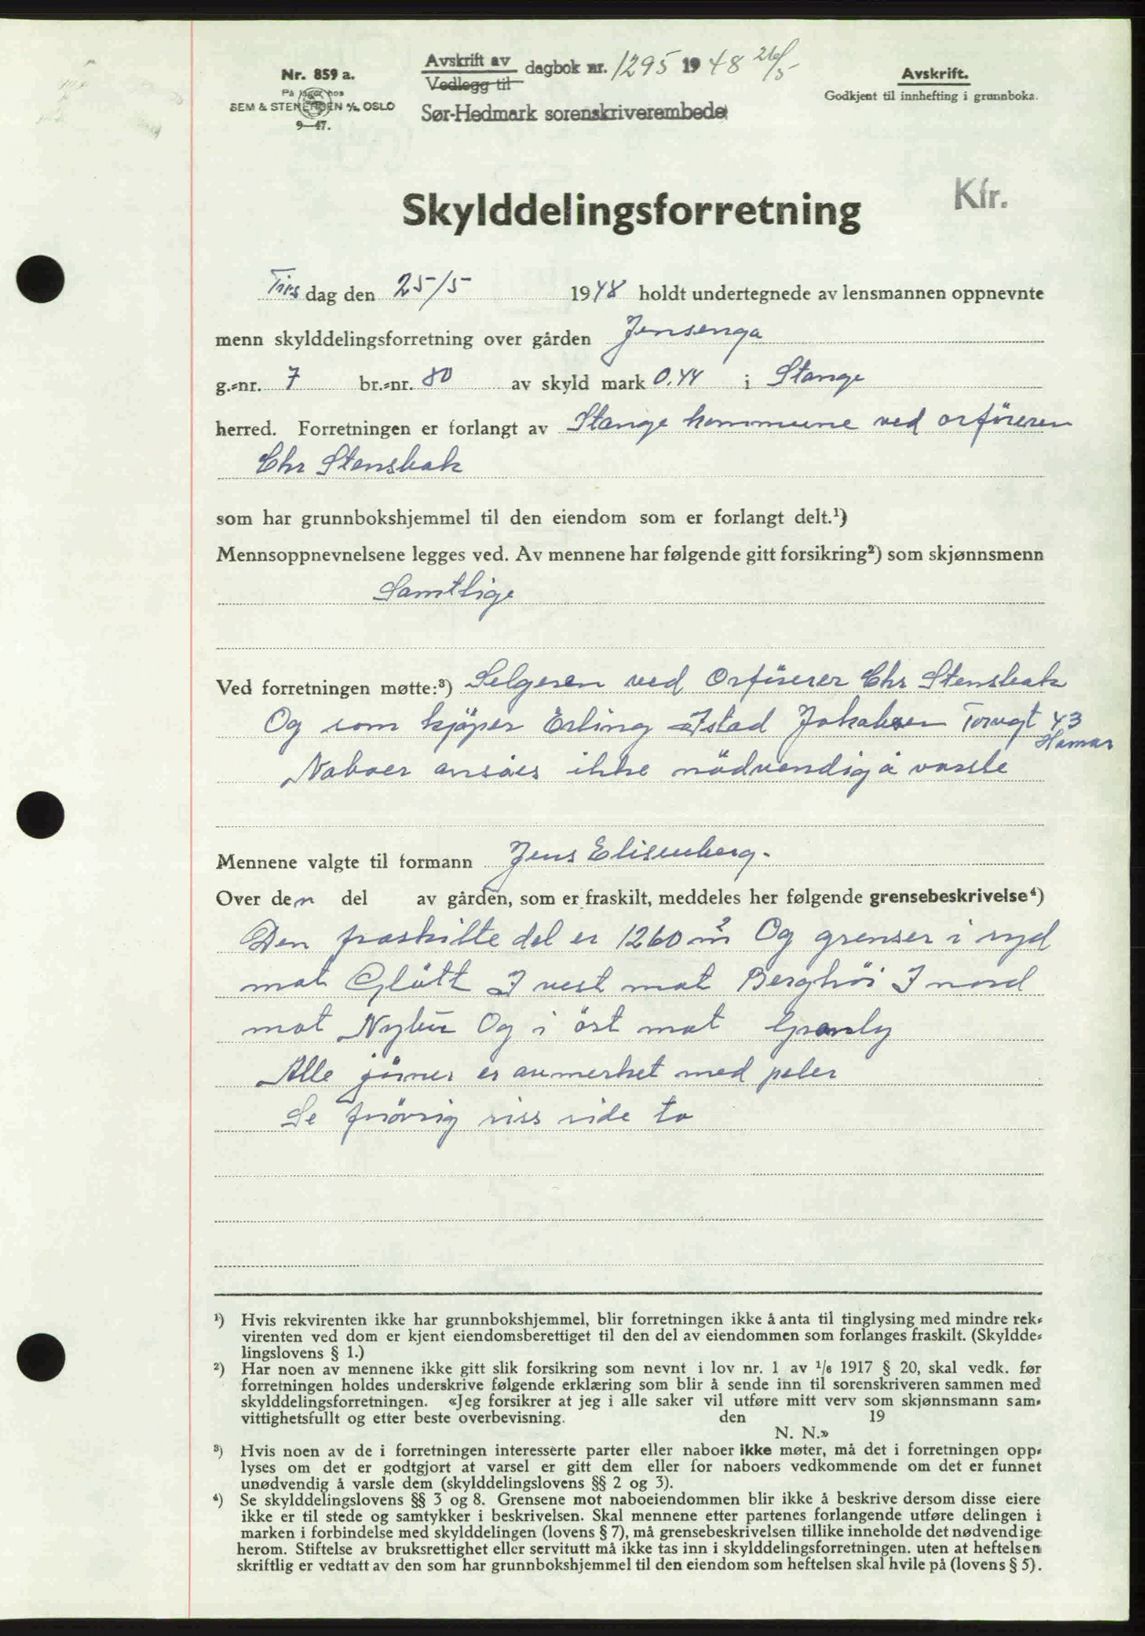 Nr. 859 a.
På lager hos
SEM & STENERSEN A/S. OSLO
9—47.
Avskrift av
Vedlegg til
dagbok nr. 1295 1948 26/5
Sør-Hedmark sorenskriverembede
Avskrift.
Godkjent til innhefting i grunnboka.
Skylddelingsforretning
Kfr.
Tirsdag den 25/5 1948 holdt undertegnede av lensmannen oppnevnte
menn skylddelingsforretning over gården Jensenga
g.-nr. 7 br.-nr. 80 av skyld mark 0.44 i Stange
herred. Forretningen er forlangt av Stange kommune ved orføreren
Chr Stensbak
som har grunnbokshjemmel til den eiendom som er forlangt delt.¹)
Mennsoppnevnelsene legges ved. Av mennene har følgende gitt forsikring²) som skjønnsmenn
Samtlige
Ved forretningen møtte:³) Selgeren ved Orførerer Chr Stensbak
Og som kjøper Erling Jakobsen Torvgt 43
Hamar
Naboer ansåes ikke nödvendig å varsle
Mennene valgte til formann Jens Elisenberg.
Over den del av gården, som er fraskilt, meddeles her følgende grensebeskrivelse⁴)
Den fraskilte del er 1260 m² Og grenser i syd
mot Gløtt I vest mot Berghöi I nord
mot Nybu Og i öst mot Granly
Alle jörner er avmerket med peler
Se forövrig riss side to
¹) Hvis rekvirenten ikke har grunnbokshjemmel, blir forretningen ikke å anta til tinglysing med mindre rek-
virenten ved dom er kjent eiendomsberettiget til den del av eiendommen som forlanges fraskilt. (Skyldde-
lingslovens § 1.)
²) Har noen av mennene ikke gitt slik forsikring som nevnt i lov nr. 1 av 1/6 1917 § 20, skal vedk. før
forretningen holdes underskrive følgende erklæring som blir å sende inn til sorenskriveren sammen med
skylddelingsforretningen. «Jeg forsikrer at jeg i alle saker vil utføre mitt verv som skjønnsmann sam-
vittighetsfullt og etter beste overbevisning. den 19
N. N.»
³) Hvis noen av de i forretningen interesserte parter eller naboer ikke møter, må det i forretningen opp-
lyses om det er godtgjort at varsel er gitt dem eller for naboers vedkommende om det er funnet
unødvendig å varsle dem (skylddelingslovens §§ 2 og 3).
⁴) Se skylddelingslovens §§ 3 og 8. Grensene mot naboeiendommen blir ikke å beskrive dersom disse eiere
ikke er til stede og samtykker i beskrivelsen. Skal mennene etter partenes forlangende utføre delingen i
marken i forbindelse med skylddelingen (lovens § 7), må grensebeskrivelsen tillike inneholde det nødvendige
herom. Stiftelse av bruksrettighet eller servitutt må ikke tas inn i skylddelingsforretningen. uten at heftelsen
skriftlig er vedtatt av den som har grunnbokshjemmel til den eiendom som heftelsen skal hvile på (lovens § 5).